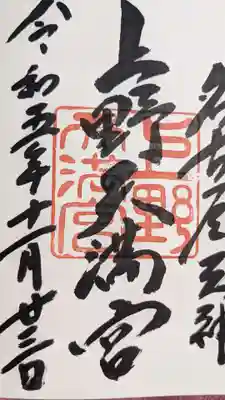 名古屋天神
上野天満宮
令和五年十一月廿三日
上野天満宮